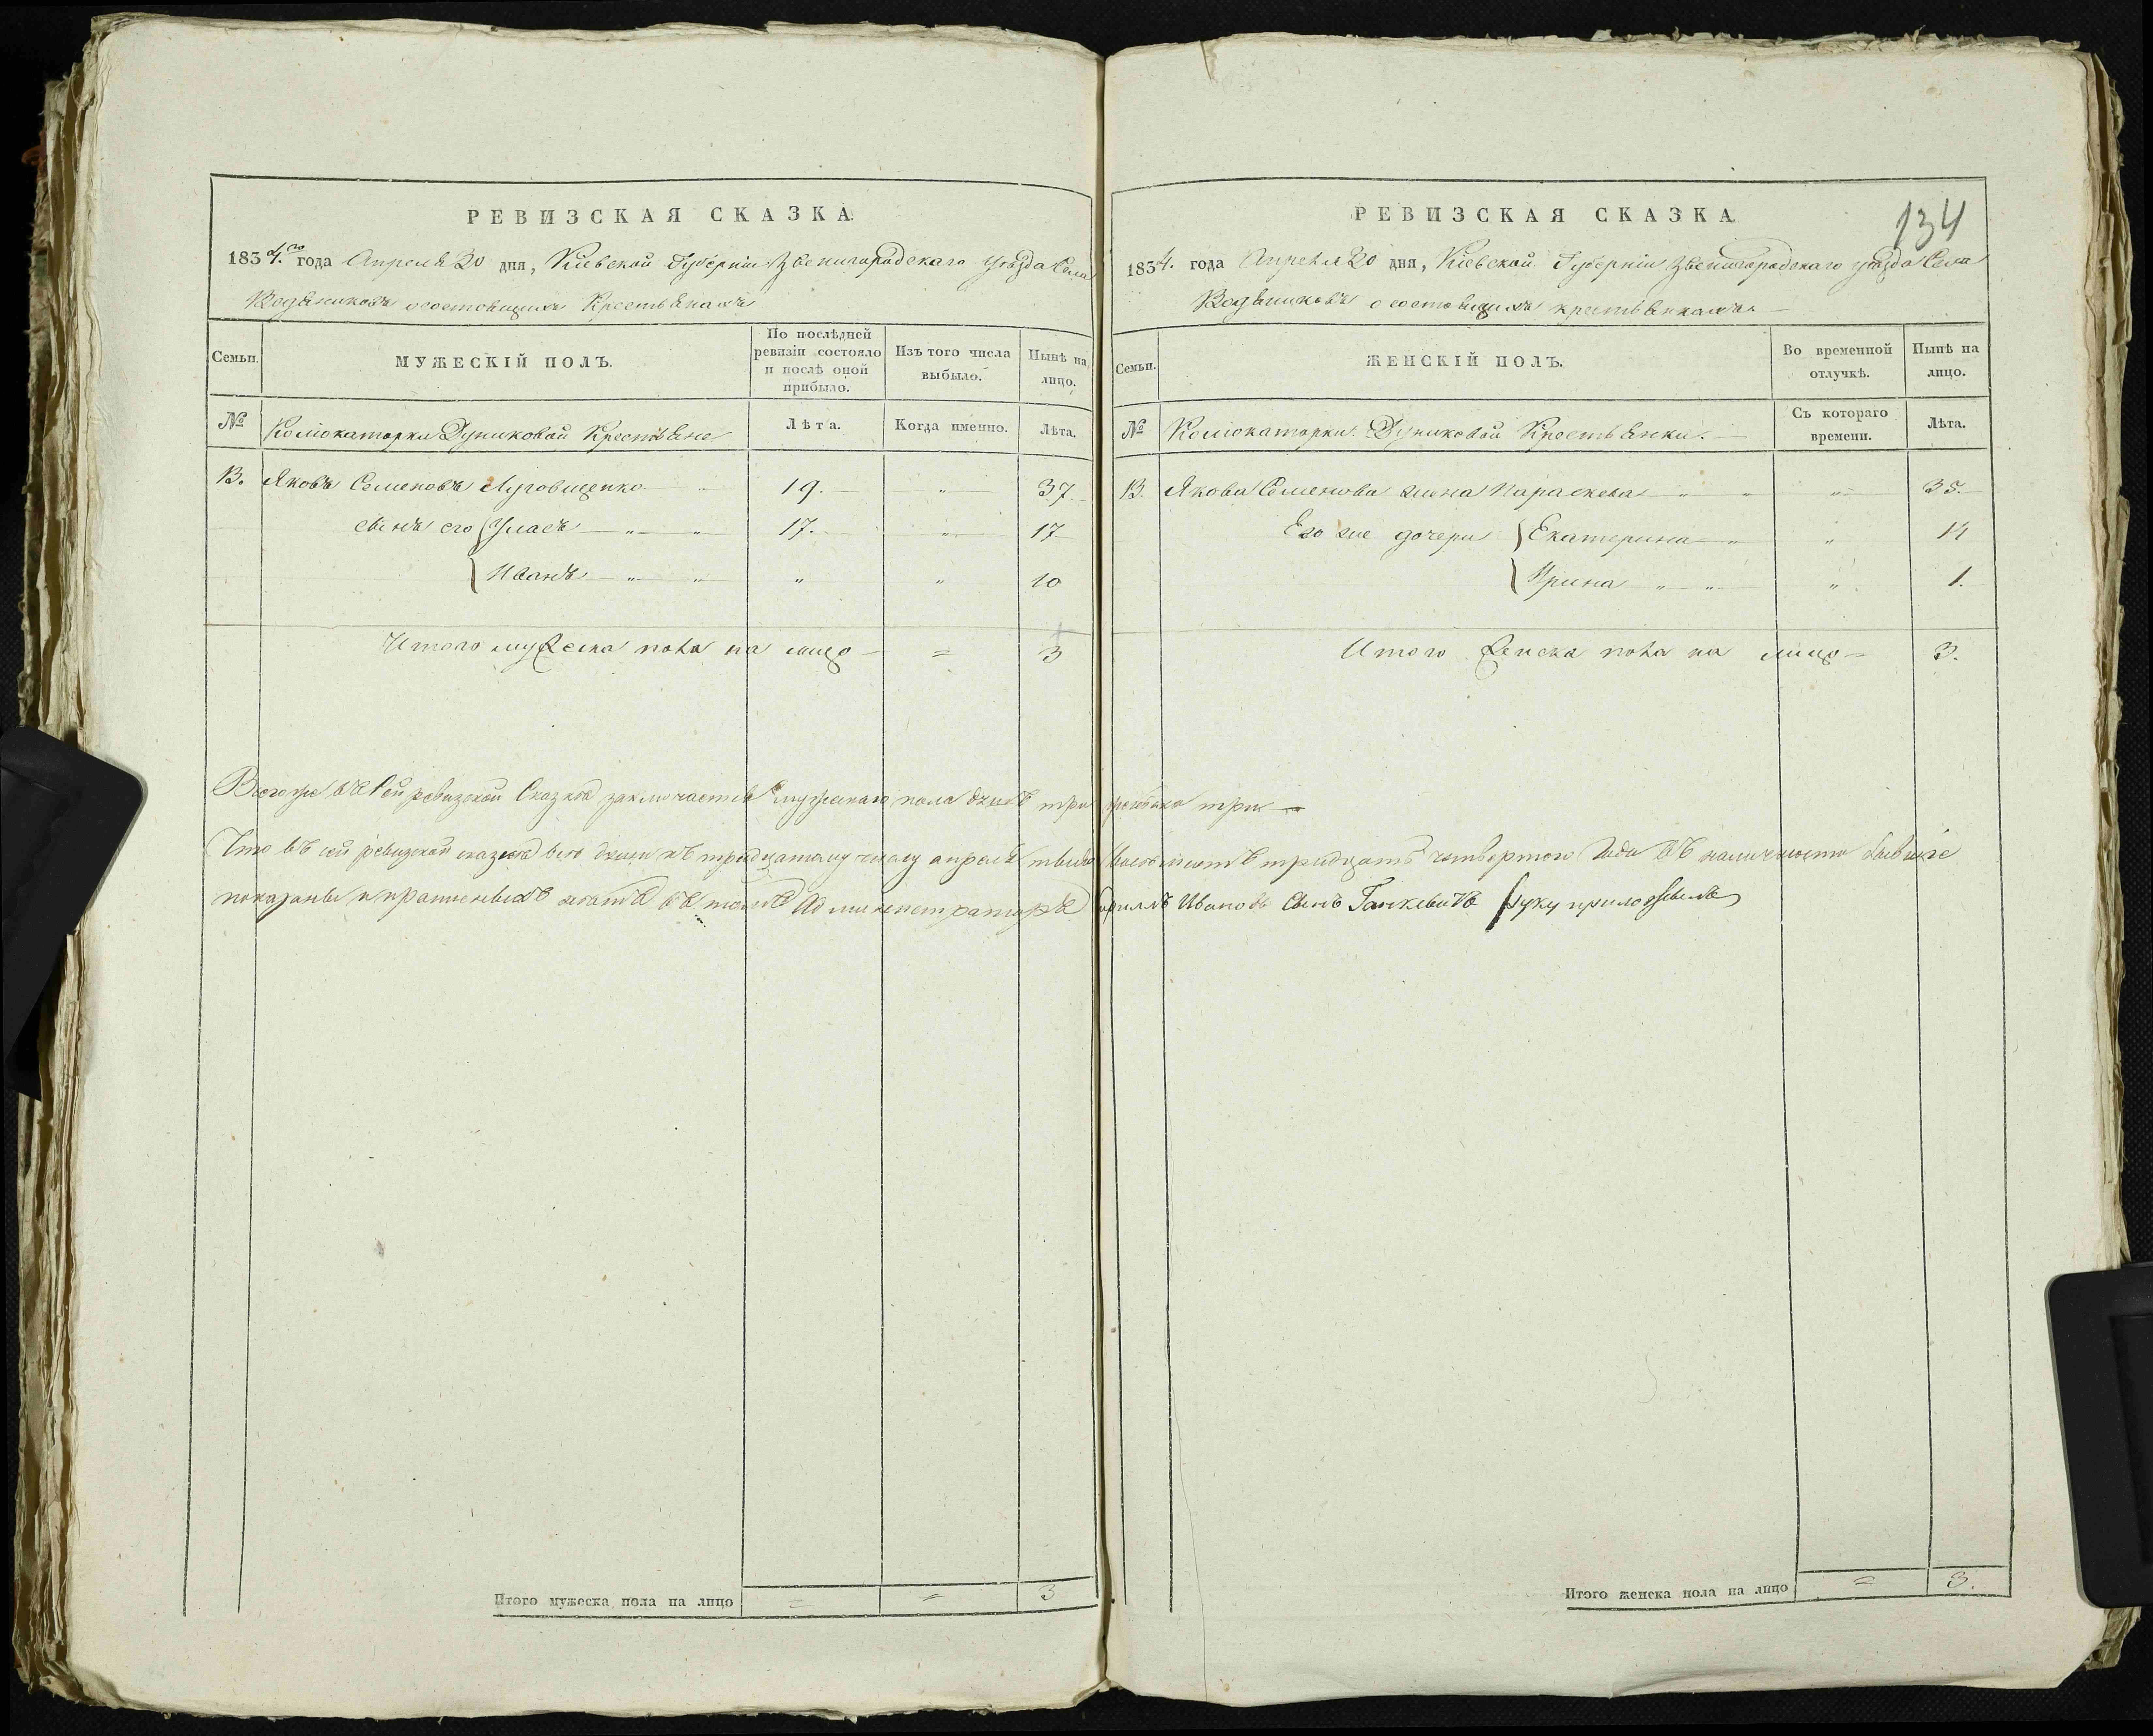 РЕВИЗСКАЯ СКАЗКА
1834.го года Апреля 20 дня, Кіевской Губерніи Звенигородскаго уѣзда Села
Водяниковъ о состоящихъ Крестьянахъ
Семьи.
МУЖЕСКІЙ ПОЛЪ.
По послѣдней ревизіи состояло и послѣ оной прибыло.
Изъ того числа выбыло.
Нынѣ на лицо.
№ Крестьяне
Лѣта.
Когда именно.
Лѣта.
13. Яковъ Семеновъ 19. " 37.
сынъ его Уласъ " " 17. " 17
Иванъ " " " " 10
Итого мужеска пола на лицо = 3
Итого мужеска пола на лицо = = 3
134
РЕВИЗСКАЯ СКАЗКА
1834. года Апреля 20 дня, Кіевской Губерніи Звенигородскаго уѣзда Села
Водяниковъ о состоящихъ крестьянкахъ
Семьи.
ЖЕНСКІЙ ПОЛЪ.
Во временной отлучкѣ.
Нынѣ на лицо.
№ Крестьянки.
Съ котораго времени.
Лѣта.
13. Якова Семенова жена Параскева " " " 35.
Его же дочери Екатерина " " 14
Ирина " " " 1.
Итого женска пола на лицо = 3.
Итого женска пола на лицо = 3.
Всего же въ сей ревизской Сказкѣ заключается мужескаго пола душъ три женскаго три
Что въ сей ревизской сказкѣ всѣ души къ тридцатому числу апреля тысяча восемсотъ тридцать четвертого Года въ наличности бывшіе
показаны и въ томъ Администраторъ Ивановъ Сынъ Ганкевичъ руку приложилъ